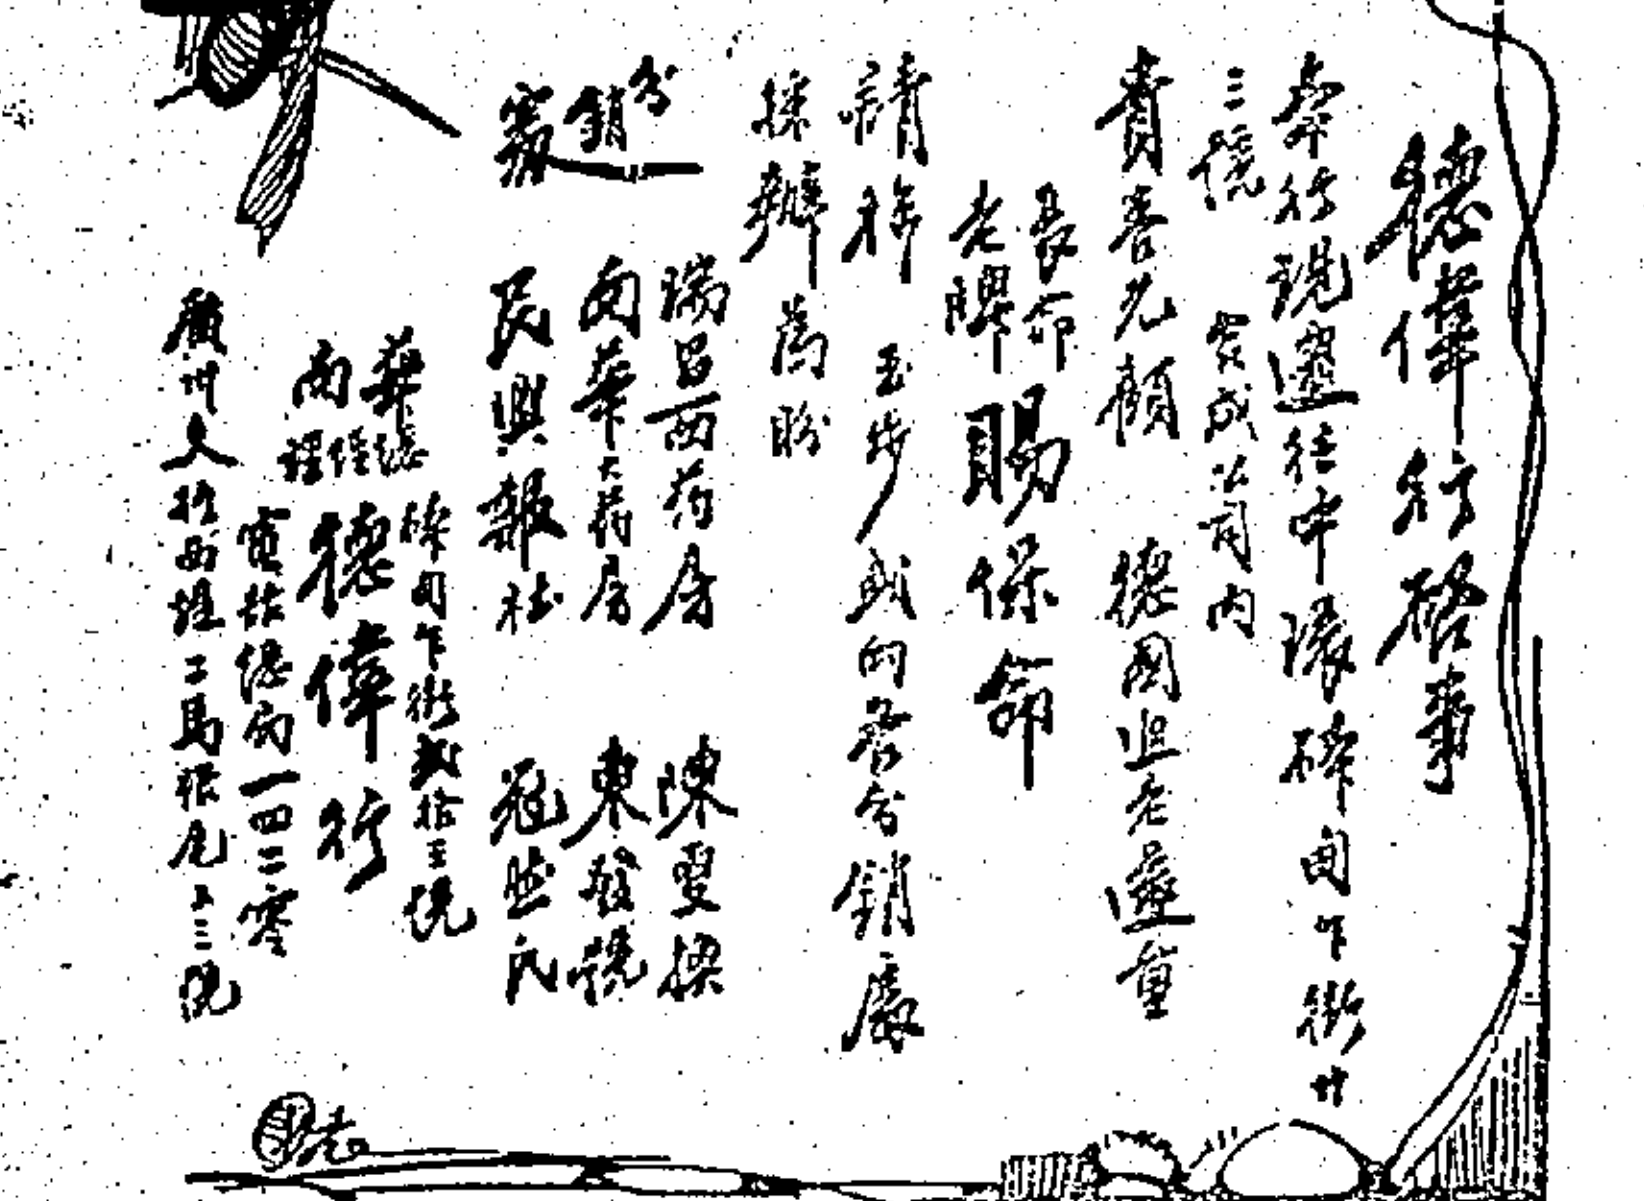 德偉行啓事
本行現遷往中環砵甸乍街廿
三號 安成公司內
貴客光顧 德國追老還童
長命
老牌
賜保命
請移 玉步或向各分銷處
採辦為盼
分銷處
瑞昌西药房 陳聖換
南華大药房 東發號
民興報社 冠芭氏
華南總經理 德偉行
砵甸乍街貳拾三號
電話總局一四二零
廣州支行西堤二馬路尾 三號